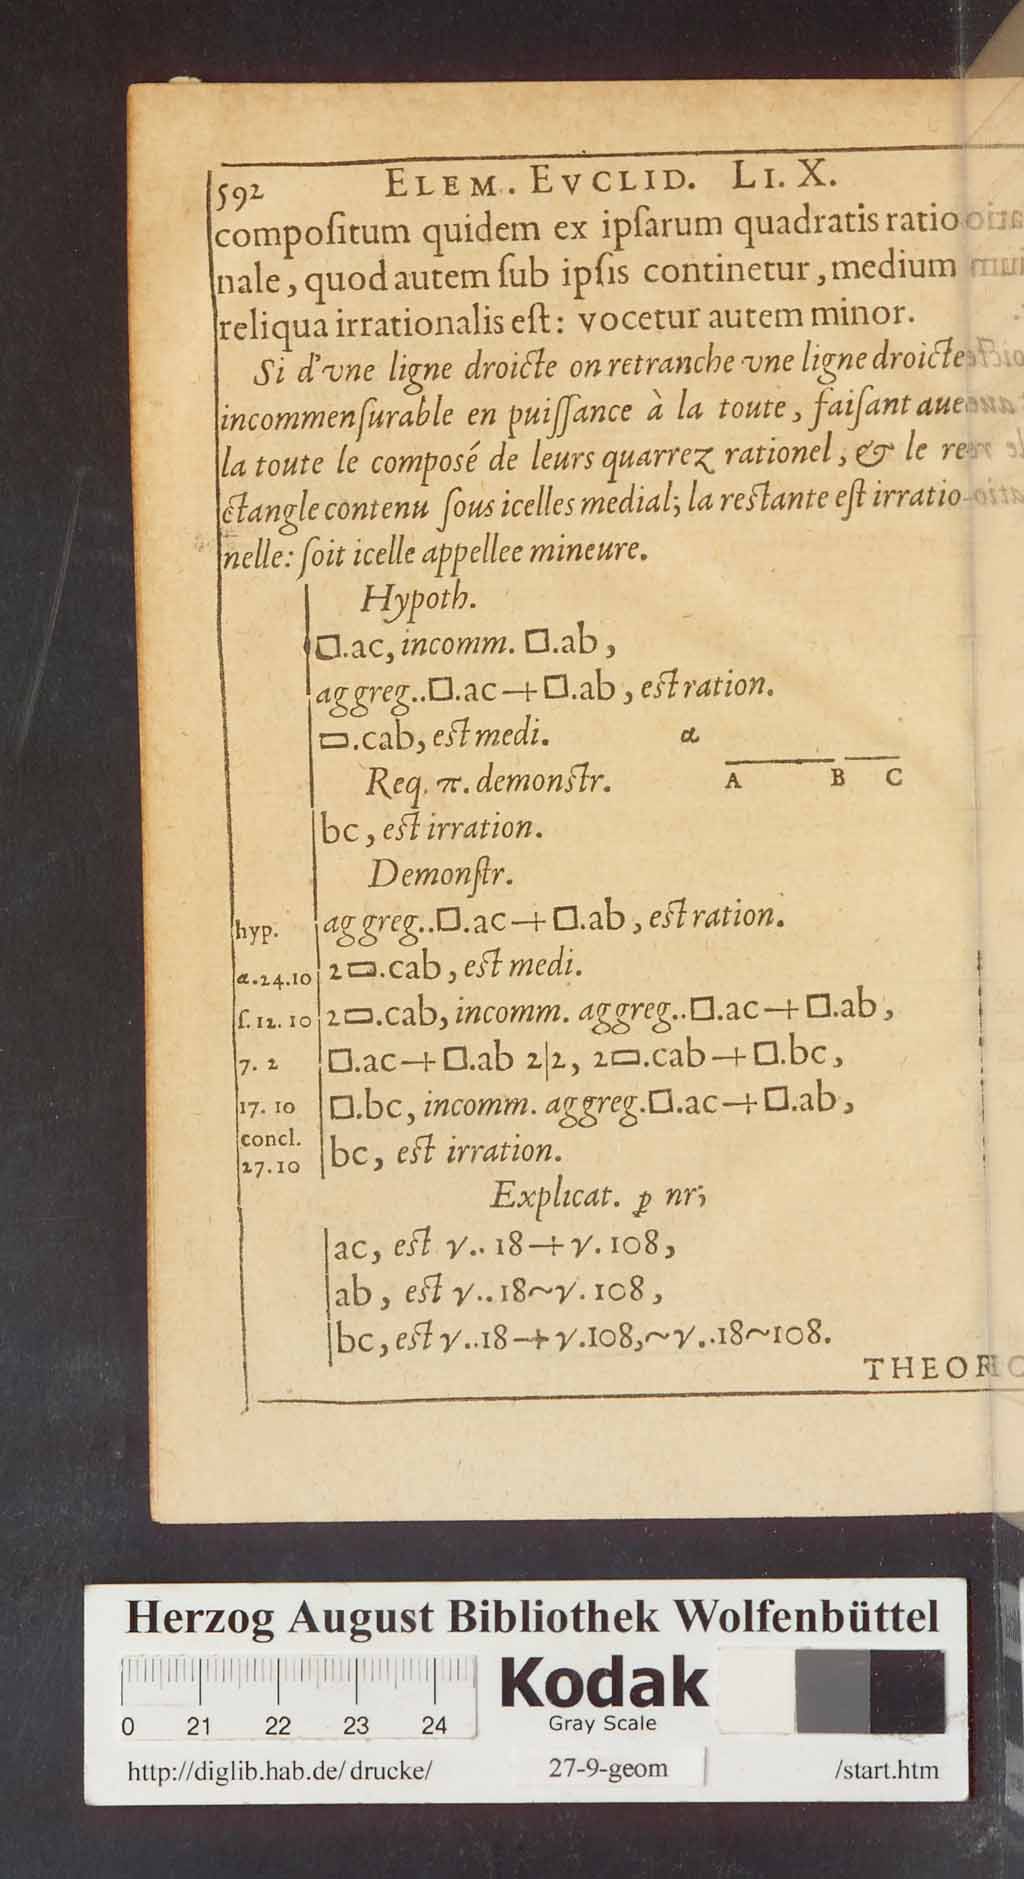 592 ELEM. EVCLID. LI. X.
compoſitum quidem ex ipſarum quadratis ratio
nale, quod autem ſub ipſis continetur, medium
reliqua irrationalis eſt: vocetur autem minor.
Si d'vne ligne droicte on retranche vne ligne droicte
incommenſurable en puiſſance à la toute, faiſant auec
la toute le composé de leurs quarrez rationel, & le re
ctangle contenu ſous icelles medial; la reſtante eſt irratio-
nelle: ſoit icelle appellee mineure.
Hypoth.
□.ac, incomm. □.ab,
aggreg..□.ac + □.ab, eſt ration.
▭.cab, eſt medi. α
Req. π. demonſtr. A B C
bc, eſt irration.
Demonſtr.
hyp. aggreg..□.ac + □.ab, eſt ration.
α.24.10 2▭.cab, eſt medi.
ſ.12.10 2▭.cab, incomm. aggreg..□.ac + □.ab,
7. 2 □.ac + □.ab 2|2, 2▭.cab + □.bc,
17. 10 □.bc, incomm. aggreg.□.ac + □.ab,
concl.
27.10 bc, eſt irration.
Explicat. ꝑ nr;
ac, eſt √.. 18 + √. 108,
ab, eſt √..18 ~ √. 108,
bc, eſt √..18 + √.108, ~ √..18 ~ 108.
THEOR
Herzog August Bibliothek Wolfenbüttel
0 21 22 23 24
Kodak
Gray Scale
http://diglib.hab.de/drucke/ 27-9-geom /start.htm